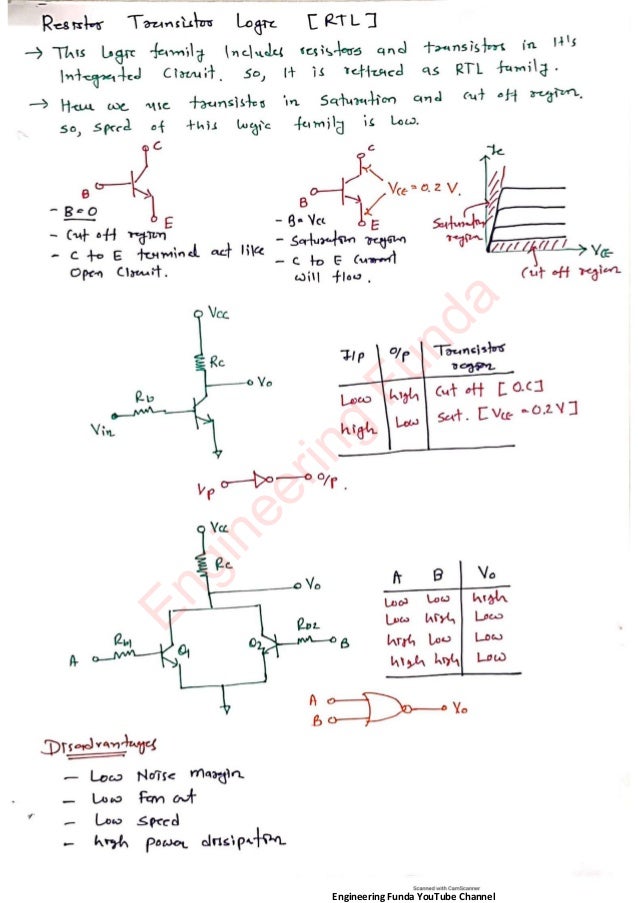 Resistor Transistor Logic [RTL]
→ This Logic family Includes resistors and transistors in It's
Integrated Circuit. So, It is reffered as RTL family.
→ Here we use transistor in Saturation and cut off region.
so, speed of this logic family is Low.
C
B
E
- B=0
- Cut off region
- C to E terminal act like
Open Circuit.
C
B
E
VCE = 0.2 V.
- B= Vcc
- Saturation region
- C to E Current
will flow.
Ic
Saturation
region
VCE
Cut off region
Vcc
Rc
Vo
Rb
Vin
I/P O/P Transistor
region
Low high Cut off [O.C]
high Low Sat. [VCE = 0.2V]
I/P O/P.
Vcc
Rc
Vo
Rb1
A
Q1
Q2
Rb2
B
A B Vo
Low Low high
Low high Low
high Low Low
high high Low
A
B
Vo
Disadvantages
- Low Noise margin
- Low Fan out
- Low speed
- high power dissipation
Engineering Funda
Scanned with CamScanner
Engineering Funda YouTube Channel